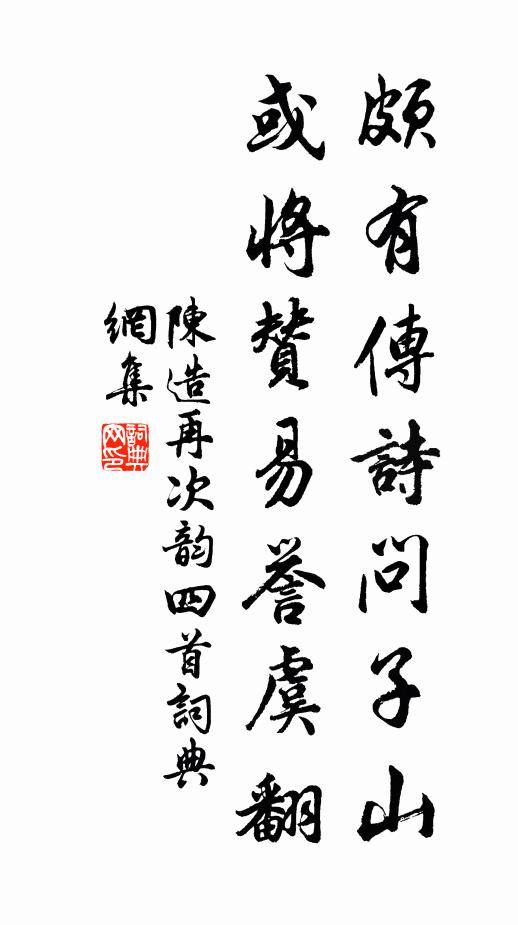 頗有傳詩問子山
或將贊易譽虞翻
陳造再次韵四首詞典
網集
詞典
网印